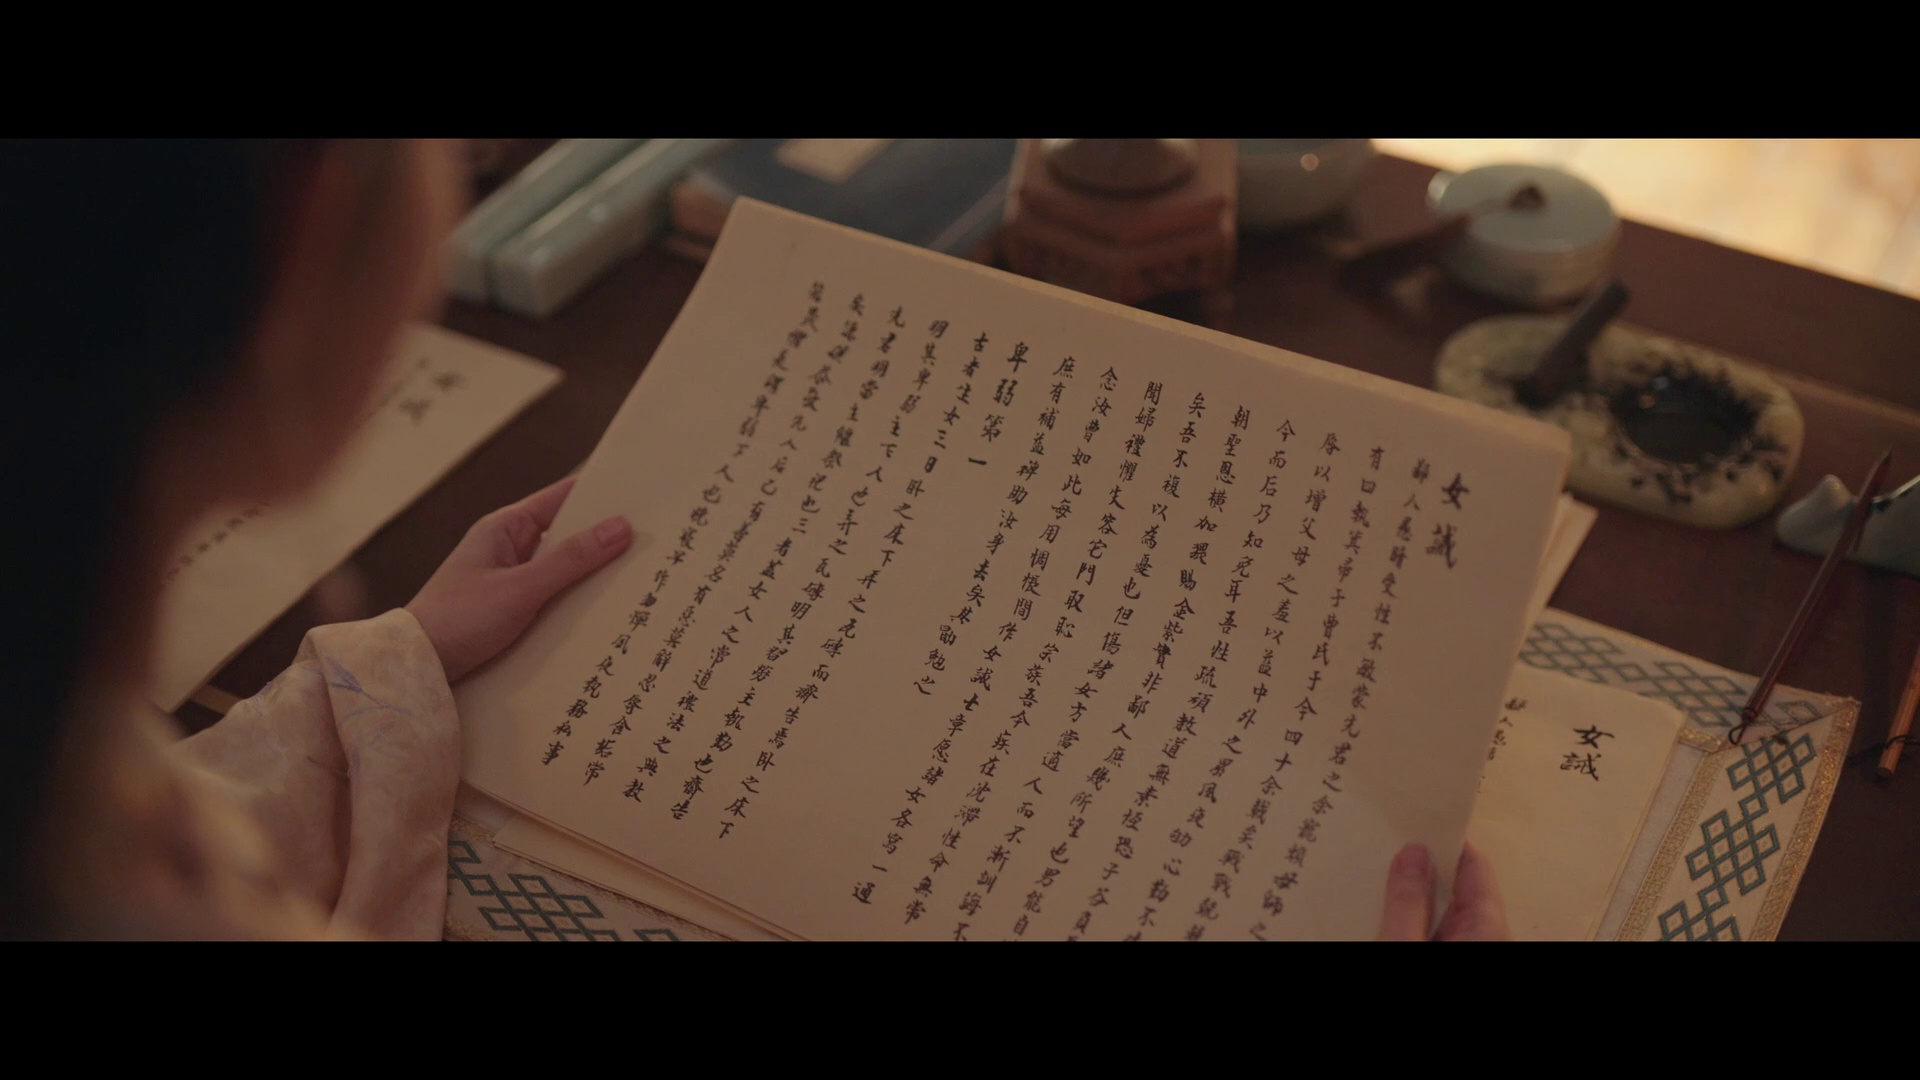 女誡
鄙人愚暗受性不敏蒙先君之余寵賴母師之
有曰執箕帚于曹氏于今四十余載矣戰戰兢
辱以增父母之羞以益中外之累夙夜劬心勤不
今而后乃知免耳吾性疏頑教道無素恒恐子谷負
朝聖恩橫加猥賜金紫實非鄙人庶幾所望也男能自
矣吾不複以為憂也但傷諸女方當適人而不漸訓誨不
聞婦禮懼失容它門取恥宗族吾今疾在沈滯性命無常
念汝曹如此每用惆悵間作女誡七章愿諸女各寫一通
庶有補益裨助汝身去矣其勖勉之
卑弱第一
古者生女三日卧之床下弄之瓦磚而齋告焉卧之床下
明其卑弱主下人也弄之瓦磚明其習勞主執勤也齋告
先君明當主繼祭祀也三者蓋女人之常道禮法之典教
矣謙讓恭敬先人后己有善莫名有惡莫辭忍辱含垢常
若畏懼是謂卑弱下人也晚寢早作勿憚夙夜執務私事
女誡
鄙人愚
女誡